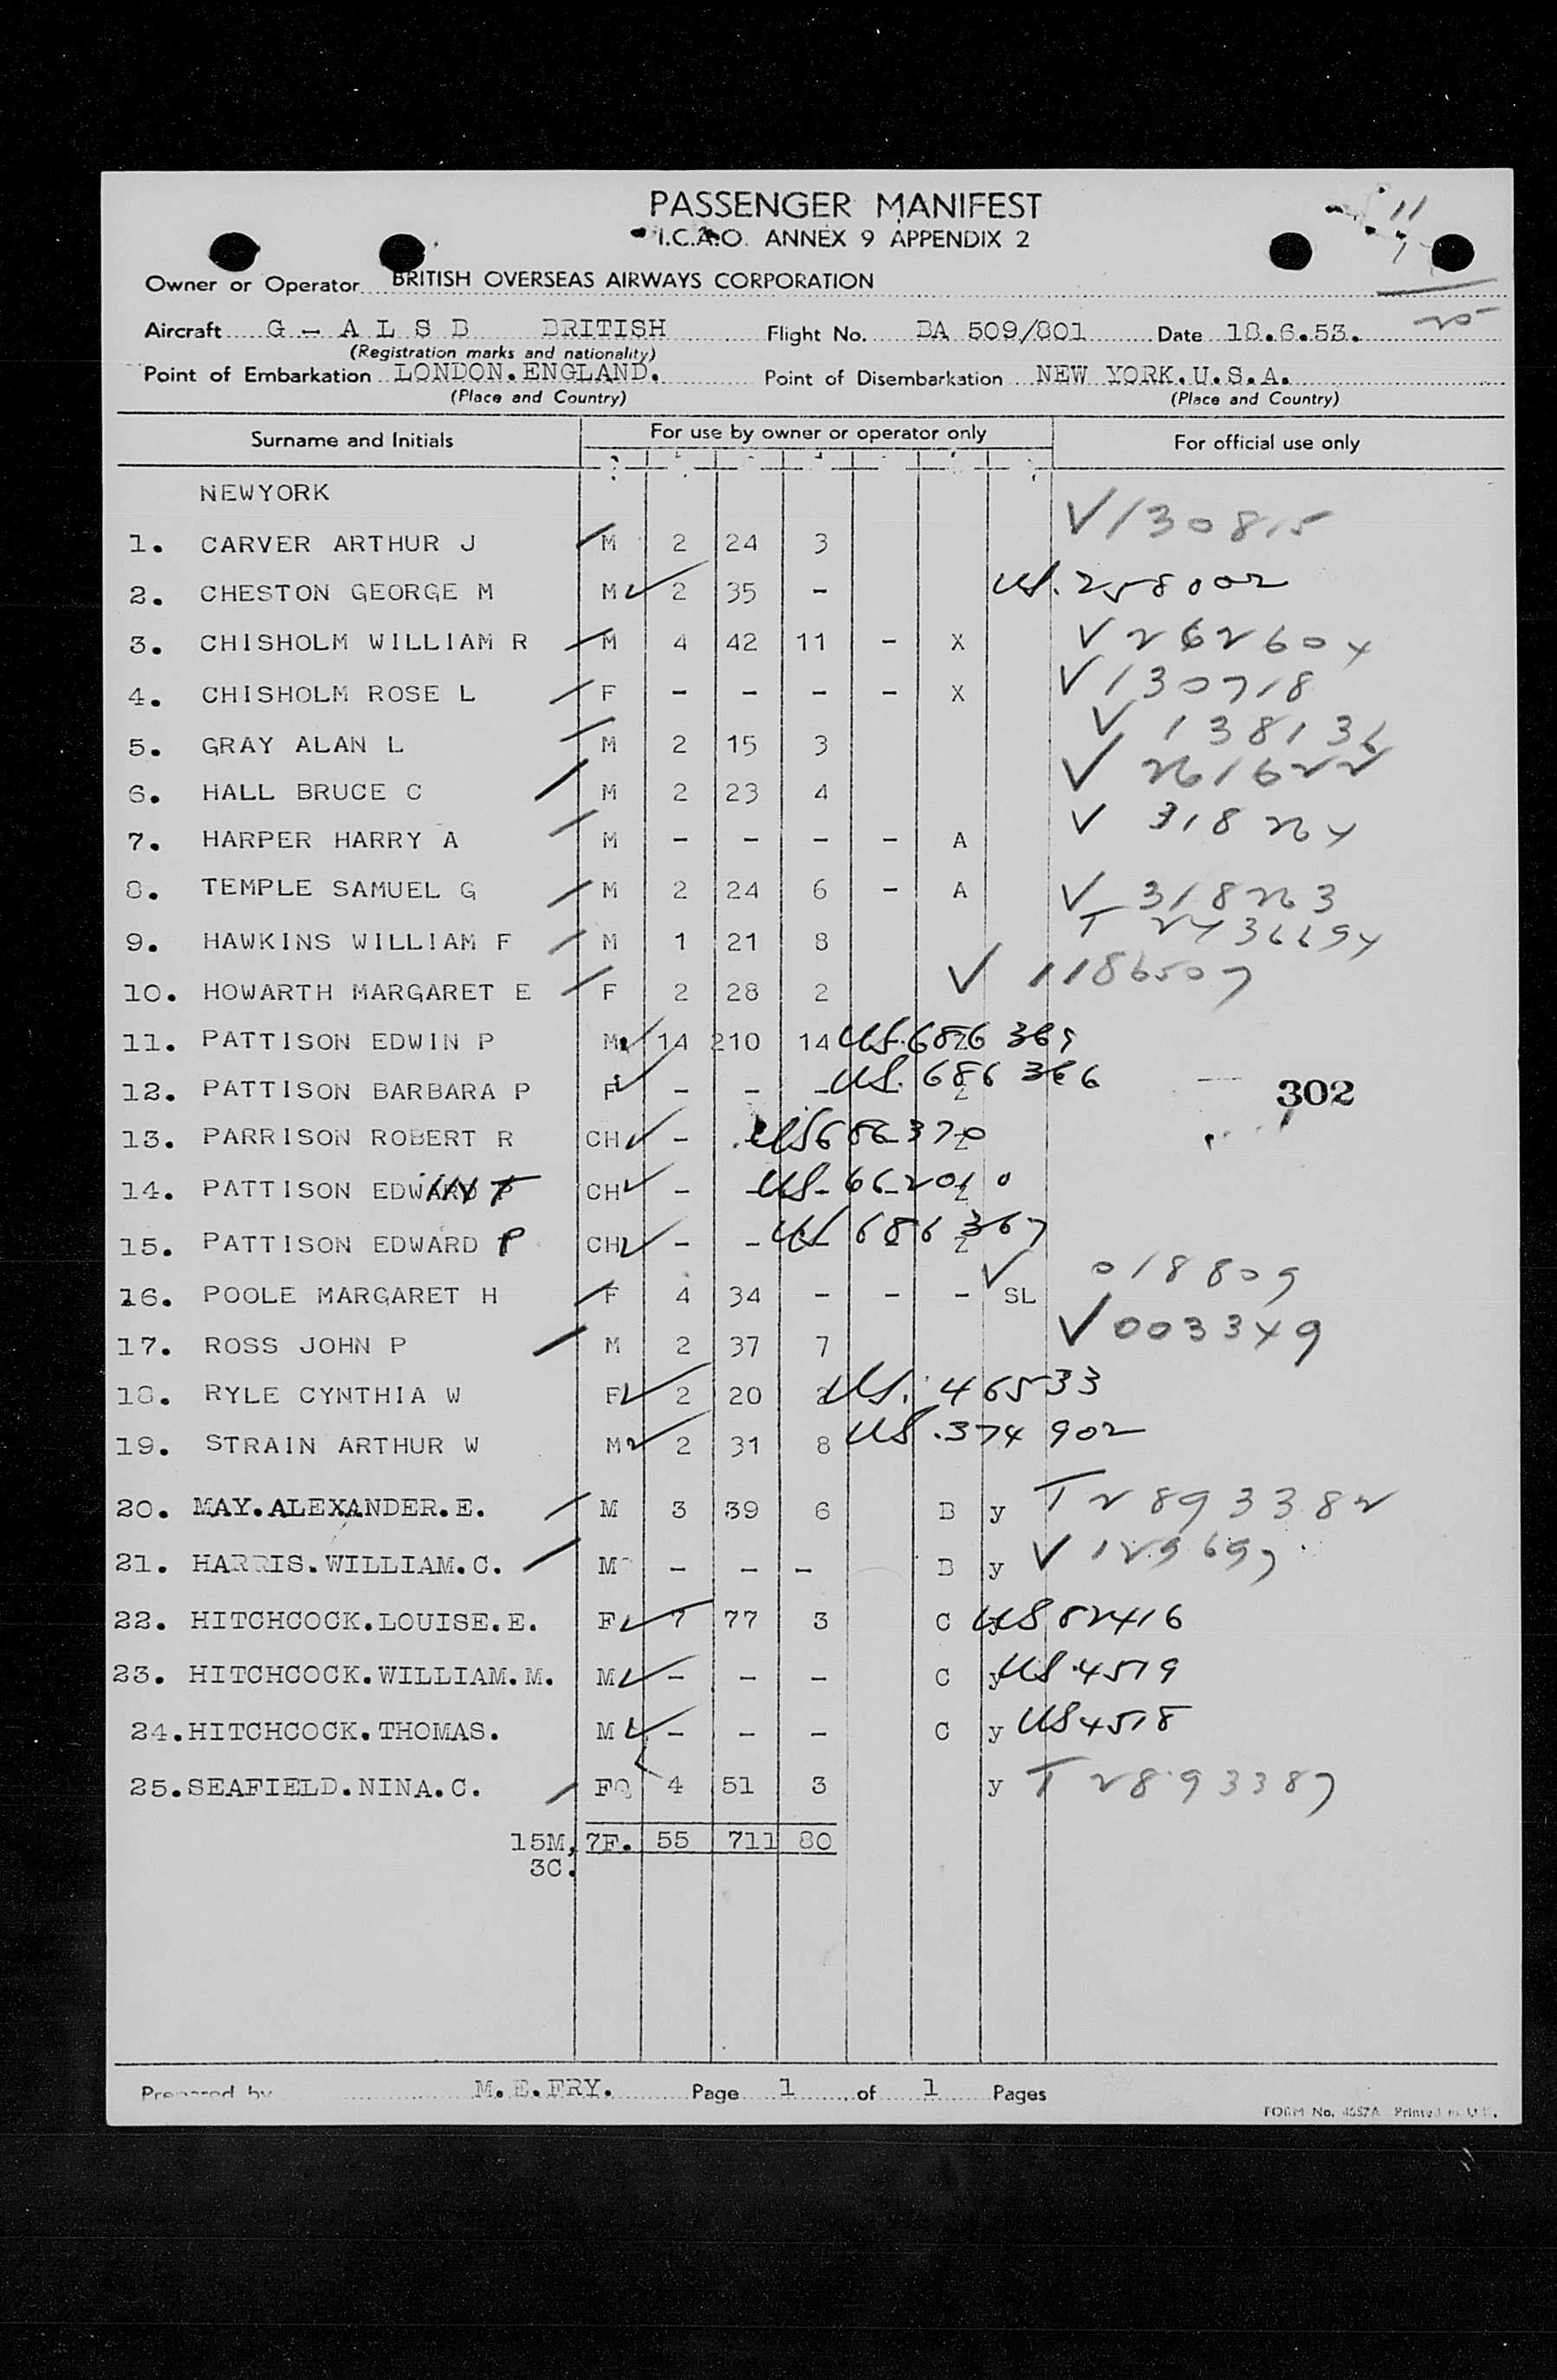 PASSENGER MANIFEST
I.C.A.O. ANNEX 9 APPENDIX 2
11
Owner or Operator BRITISH OVERSEAS AIRWAYS CORPORATION
Aircraft G - A L S B BRITISH Flight No. BA 509/801 Date 18.6.53.
(Registration marks and nationality)
Point of Embarkation LONDON.ENGLAND. Point of Disembarkation NEW YORK.U.S.A.
(Place and Country) (Place and Country)
Surname and Initials For use by owner or operator only For official use only
NEWYORK
1. CARVER ARTHUR J M 2 24 3 V 130815
2. CHESTON GEORGE M M 2 35 - US. 258002
3. CHISHOLM WILLIAM R M 4 42 11 - X V 262604
4. CHISHOLM ROSE L F - - - - X V 130718
5. GRAY ALAN L M 2 15 3 V 138136
6. HALL BRUCE C M 2 23 4 V 261622
7. HARPER HARRY A M - - - - A V 318264
8. TEMPLE SAMUEL G M 2 24 6 - A V 318263
9. HAWKINS WILLIAM F M 1 21 8 T 2436694
10. HOWARTH MARGARET E F 2 28 2 V 1186507
11. PATTISON EDWIN P M 14 210 14 US. 686 369 Z
12. PATTISON BARBARA P F - - - US. 686 366 Z
302
13. PARRISON ROBERT R CH - US 686370 Z
14. PATTISON EDWARD P CH - - US 662010 Z
15. PATTISON EDWARD P CH - - US 686 367 Z
16. POOLE MARGARET H F 4 34 - - - SL V 018809
17. ROSS JOHN P M 2 37 7 V 003349
18. RYLE CYNTHIA W F 2 20 2 US. 46533
19. STRAIN ARTHUR W M 2 31 8 US. 374 902
20. MAY.ALEXANDER.E. M 3 39 6 B y T 2893382
21. HARRIS.WILLIAM.C. M - - - B y V 129697
22. HITCHCOCK.LOUISE.E. F 7 77 3 C US 82416
23. HITCHCOCK.WILLIAM.M. M - - - C y US. 4519
24. HITCHCOCK.THOMAS. M - - - C y US 4518
25. SEAFIELD.NINA.C. F 4 51 3 y T 2893387
15M, 7F. 55 711 80
3C.
Prepared by M.E.FRY. Page 1 of 1 Pages
FORM No. Printed in U.K.